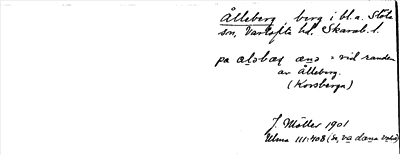 Ålleberg, berg i bl. a. Stola
sn, Vartofta hd. Skarab. l.
på alsbæs æns = vid randen
av Ålleberg.
(Korsberga)
J. Möller 1901
Ulma 111:408